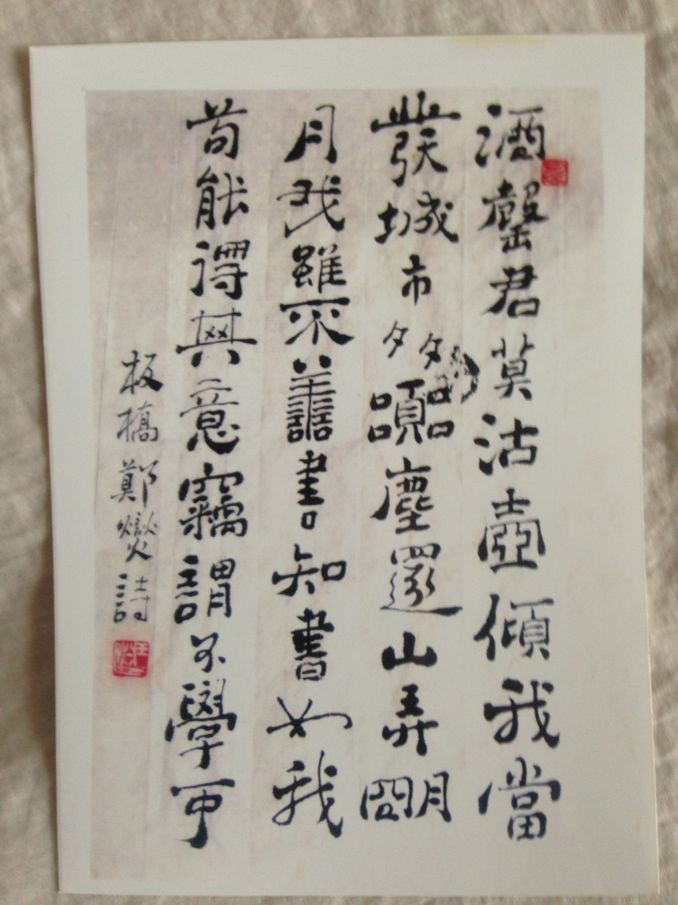 酒罄君莫沽壺傾我當
發城市多囂塵還山弄朙
月我雖不譱書知書如我
苟能得其意竊謂不學可
板橋鄭燮詩